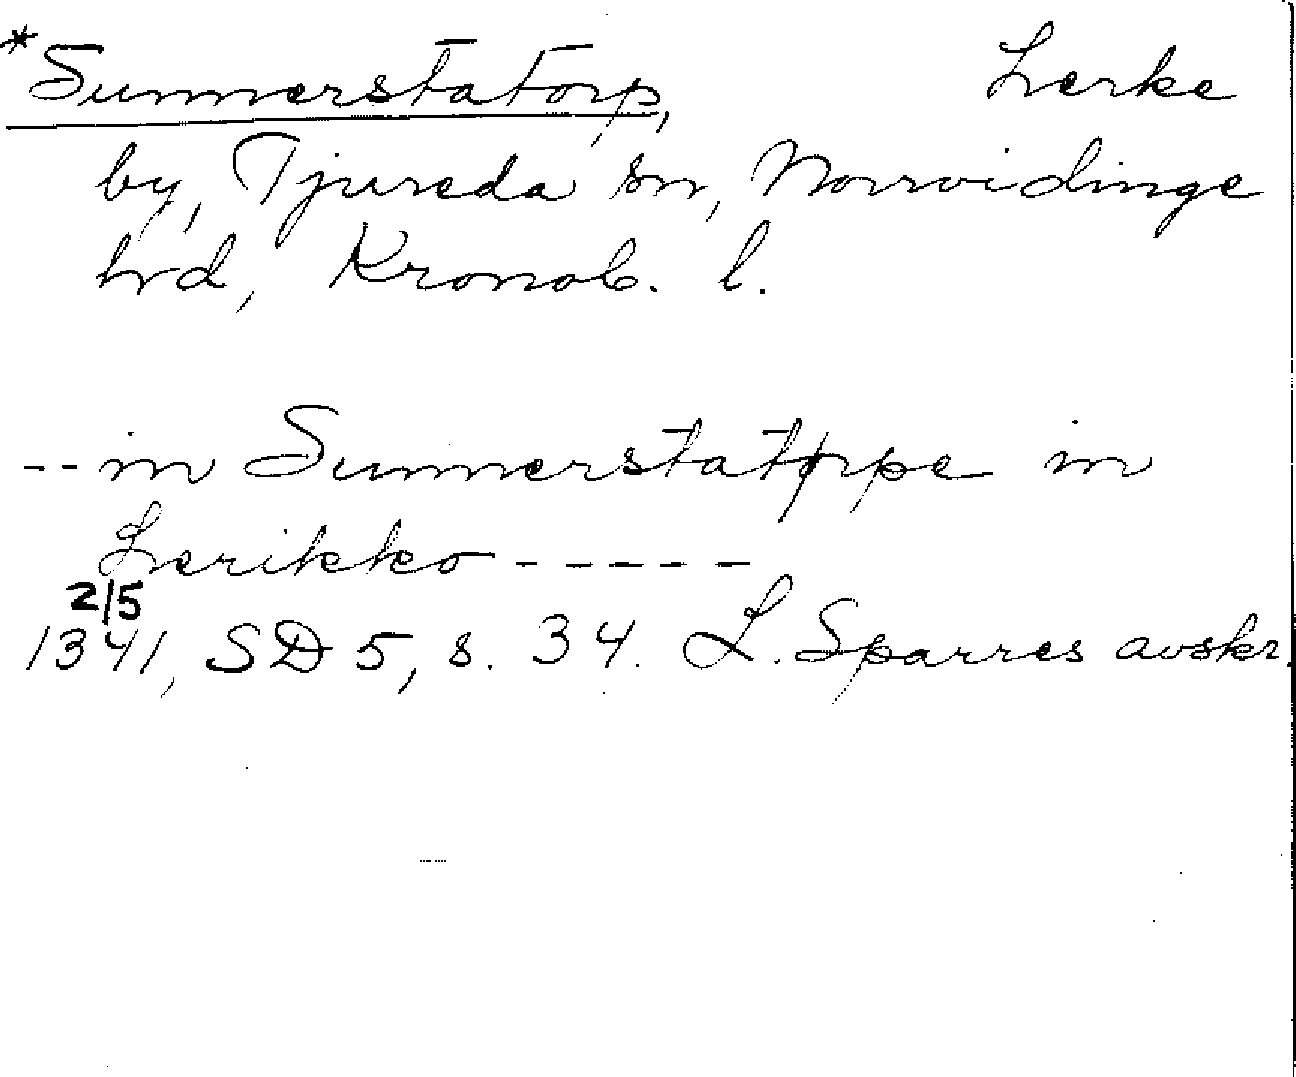 *Sunnerstatorp, Lerke
by, Tjureda sn, Norrvidinge
hrd, Kronob. l.
-- in Sunnerstatorpe in
Lerikko -----
2/5
1341, SD 5, s. 34. L. Sparres avskr.